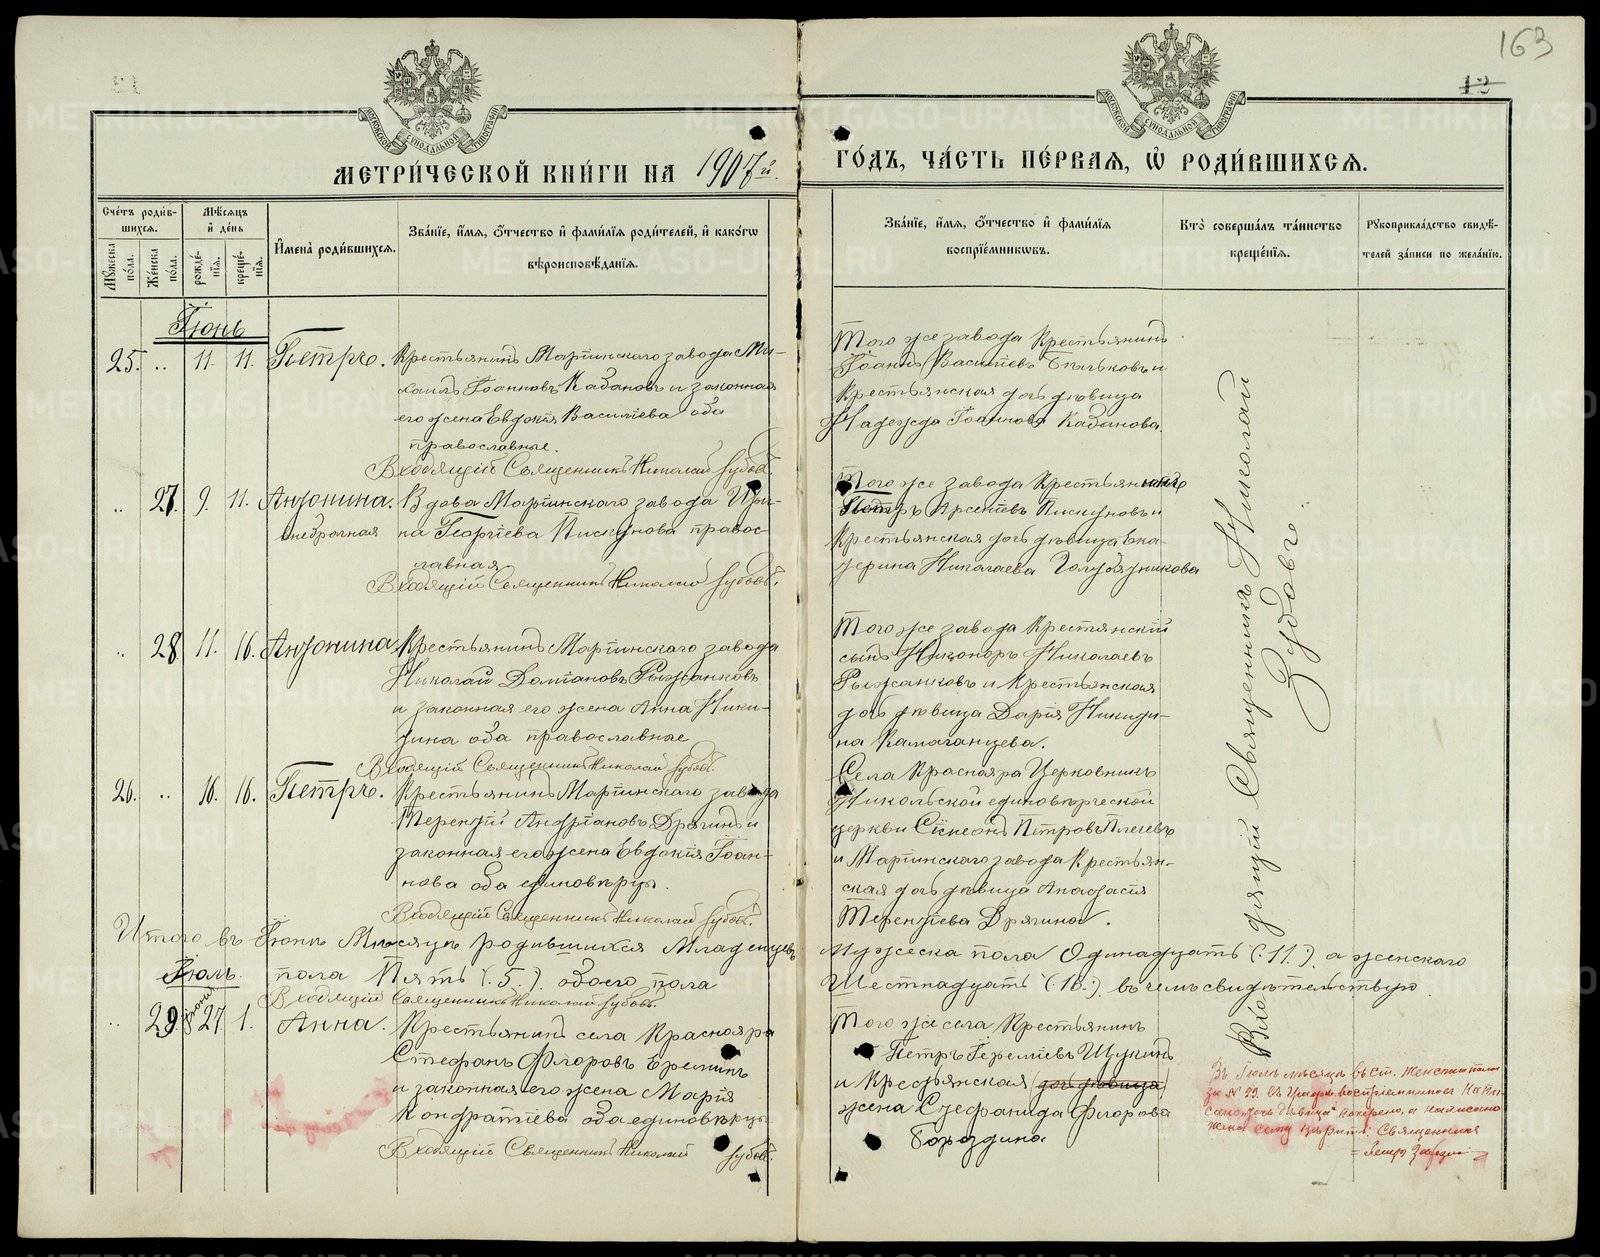 163
13
МОСКОВСКОЙ СѴНОДАЛЬНОЙ ТИПОГРАФІИ
МОСКОВСКОЙ СѴНОДАЛЬНОЙ ТИПОГРАФІИ
МЕТРИ́ЧЕСКОЙ КНИ́ГИ НА 1907 й.
ГО́ДЪ, ЧА́СТЬ ПЕ́РВАЯ, Ѽ РОДИ́ВШИХСЯ.
Сче́тъ роди́вшихся.
Мꙋ́жеска по́ла.
Же́нска по́ла.
Мѣ́сяцъ и҆ де́нь
рожде́нїя.
креще́нїя.
И҆мена̀ роди́вшихся.
Зва́нїе, и҆́мя, ѻ҆́тчество и҆ фами́лїя роди́телей, и҆ како́гѡ
вѣроисповѣ́данїя.
Зва́нїе, и҆́мя, ѻ҆́тчество и҆ фами́лїя
воспрїе́мникѡвъ.
Кто̀ соверша́лъ та́инство
креще́нїя.
Рꙋкоприкла́дство свидѣ́-
телей за́писи по жела́нїю.
Іюнь
25. „ 11. 11. Петръ.
Крестьянинъ Маріинскаго завода Ми-
хаилъ Іоанновъ Кабановъ и законная
его жена Евдокія Васильева оба
православные.
Входящій Священникъ Николай Зубовъ.
Того же завода Крестьянинъ
Іоаннъ Васильевъ и
Крестьянская дочь дѣвица
Надежда Іоаннова Кабанова
„ 27. 9. 11. Антонина.
внебрачная
Вдова Маріинскаго завода Ири-
на Георгіева Пискунова правос-
лавная
Входящій Священникъ Николай Зубовъ.
Того же завода Крестьянинъ
Петръ Арсеніевъ Пискуновъ и
Крестьянская дочь дѣвица Ека-
терина Николаева
„ 28. 11. 16. Антонина
Крестьянинъ Маріинскаго завода
Николай Даміановъ Рыжанковъ
и законная его жена Анна Ники-
тина оба православные
Входящій Священникъ Николай Зубовъ.
Того же завода Крестянскій
сынъ Никоноръ Николаевъ
Рыжанковъ и Крестьянская
дочь дѣвица Дарія Никити-
на Камаганцева.
26. „ 16. 16. Петръ.
Крестьянинъ Маріинскаго завода
Терентій Андріановъ Дрягинъ и
законная его жена Евдокія Іоан-
нова оба единовѣрцы.
Входящій Священникъ Николай Зубовъ.
Села Краснояра Церковникъ
Никольской единовѣрческой
церкви Сімеонъ Петровъ
и Маріинскаго завода Крестьян-
ская дочь дѣвица Анастасія
Терентіева Дрягина.
Итого въ Іюнѣ Мѣсяцѣ родившихся Младенцевъ
Мужеска пола Одинадцать (:11:), а женскаго
пола Пять (:5:). обоего пола
Шестнадцать (:16:). въ чемъ свидѣтельствую.
Входящій Священникъ Николай Зубовъ.
Іюль.
„ 29. Іюня 27. 1. Анна.
Крестьянинъ села Краснояра
Стефанъ Флоровъ Ереминъ
и законная его жена Марія
Кондратіева оба единовѣрцы
Входящій Священникъ Николай Зубовъ.
Того же села Крестьянинъ
Петръ Іереміевъ Щукинъ
и Крестьянская (дочь дѣвица)
жена Стефанида Флорова
Бороздина
Входящій Священникъ Николай
Зубовъ.
Въ Іюлѣ мѣсяцѣ въ ст. женскаго пола
за № 29. въ графѣ воспріемниковъ напи-
сано „дочь дѣвица“ похерено, а написано
жена сему вѣрить. Священникъ
Петръ
METRIKI.GASO-URAL.RU